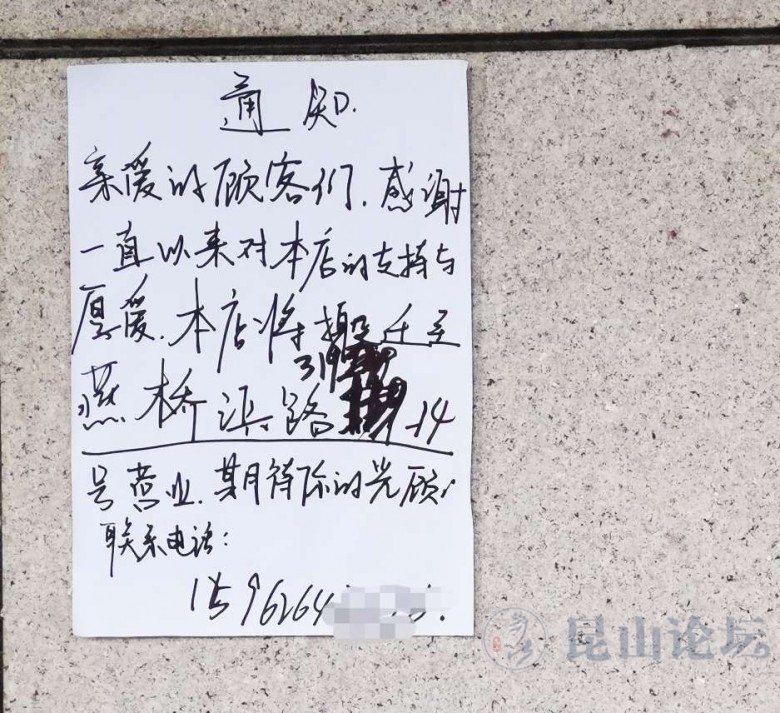 通知.
亲爱的顾客们、感谢
一直以来对本店的支持与
厚爱、本店将搬迁至
燕桥浜路319-14
号营业、期待您的光顾!
联系电话:
1596264
昆山论坛